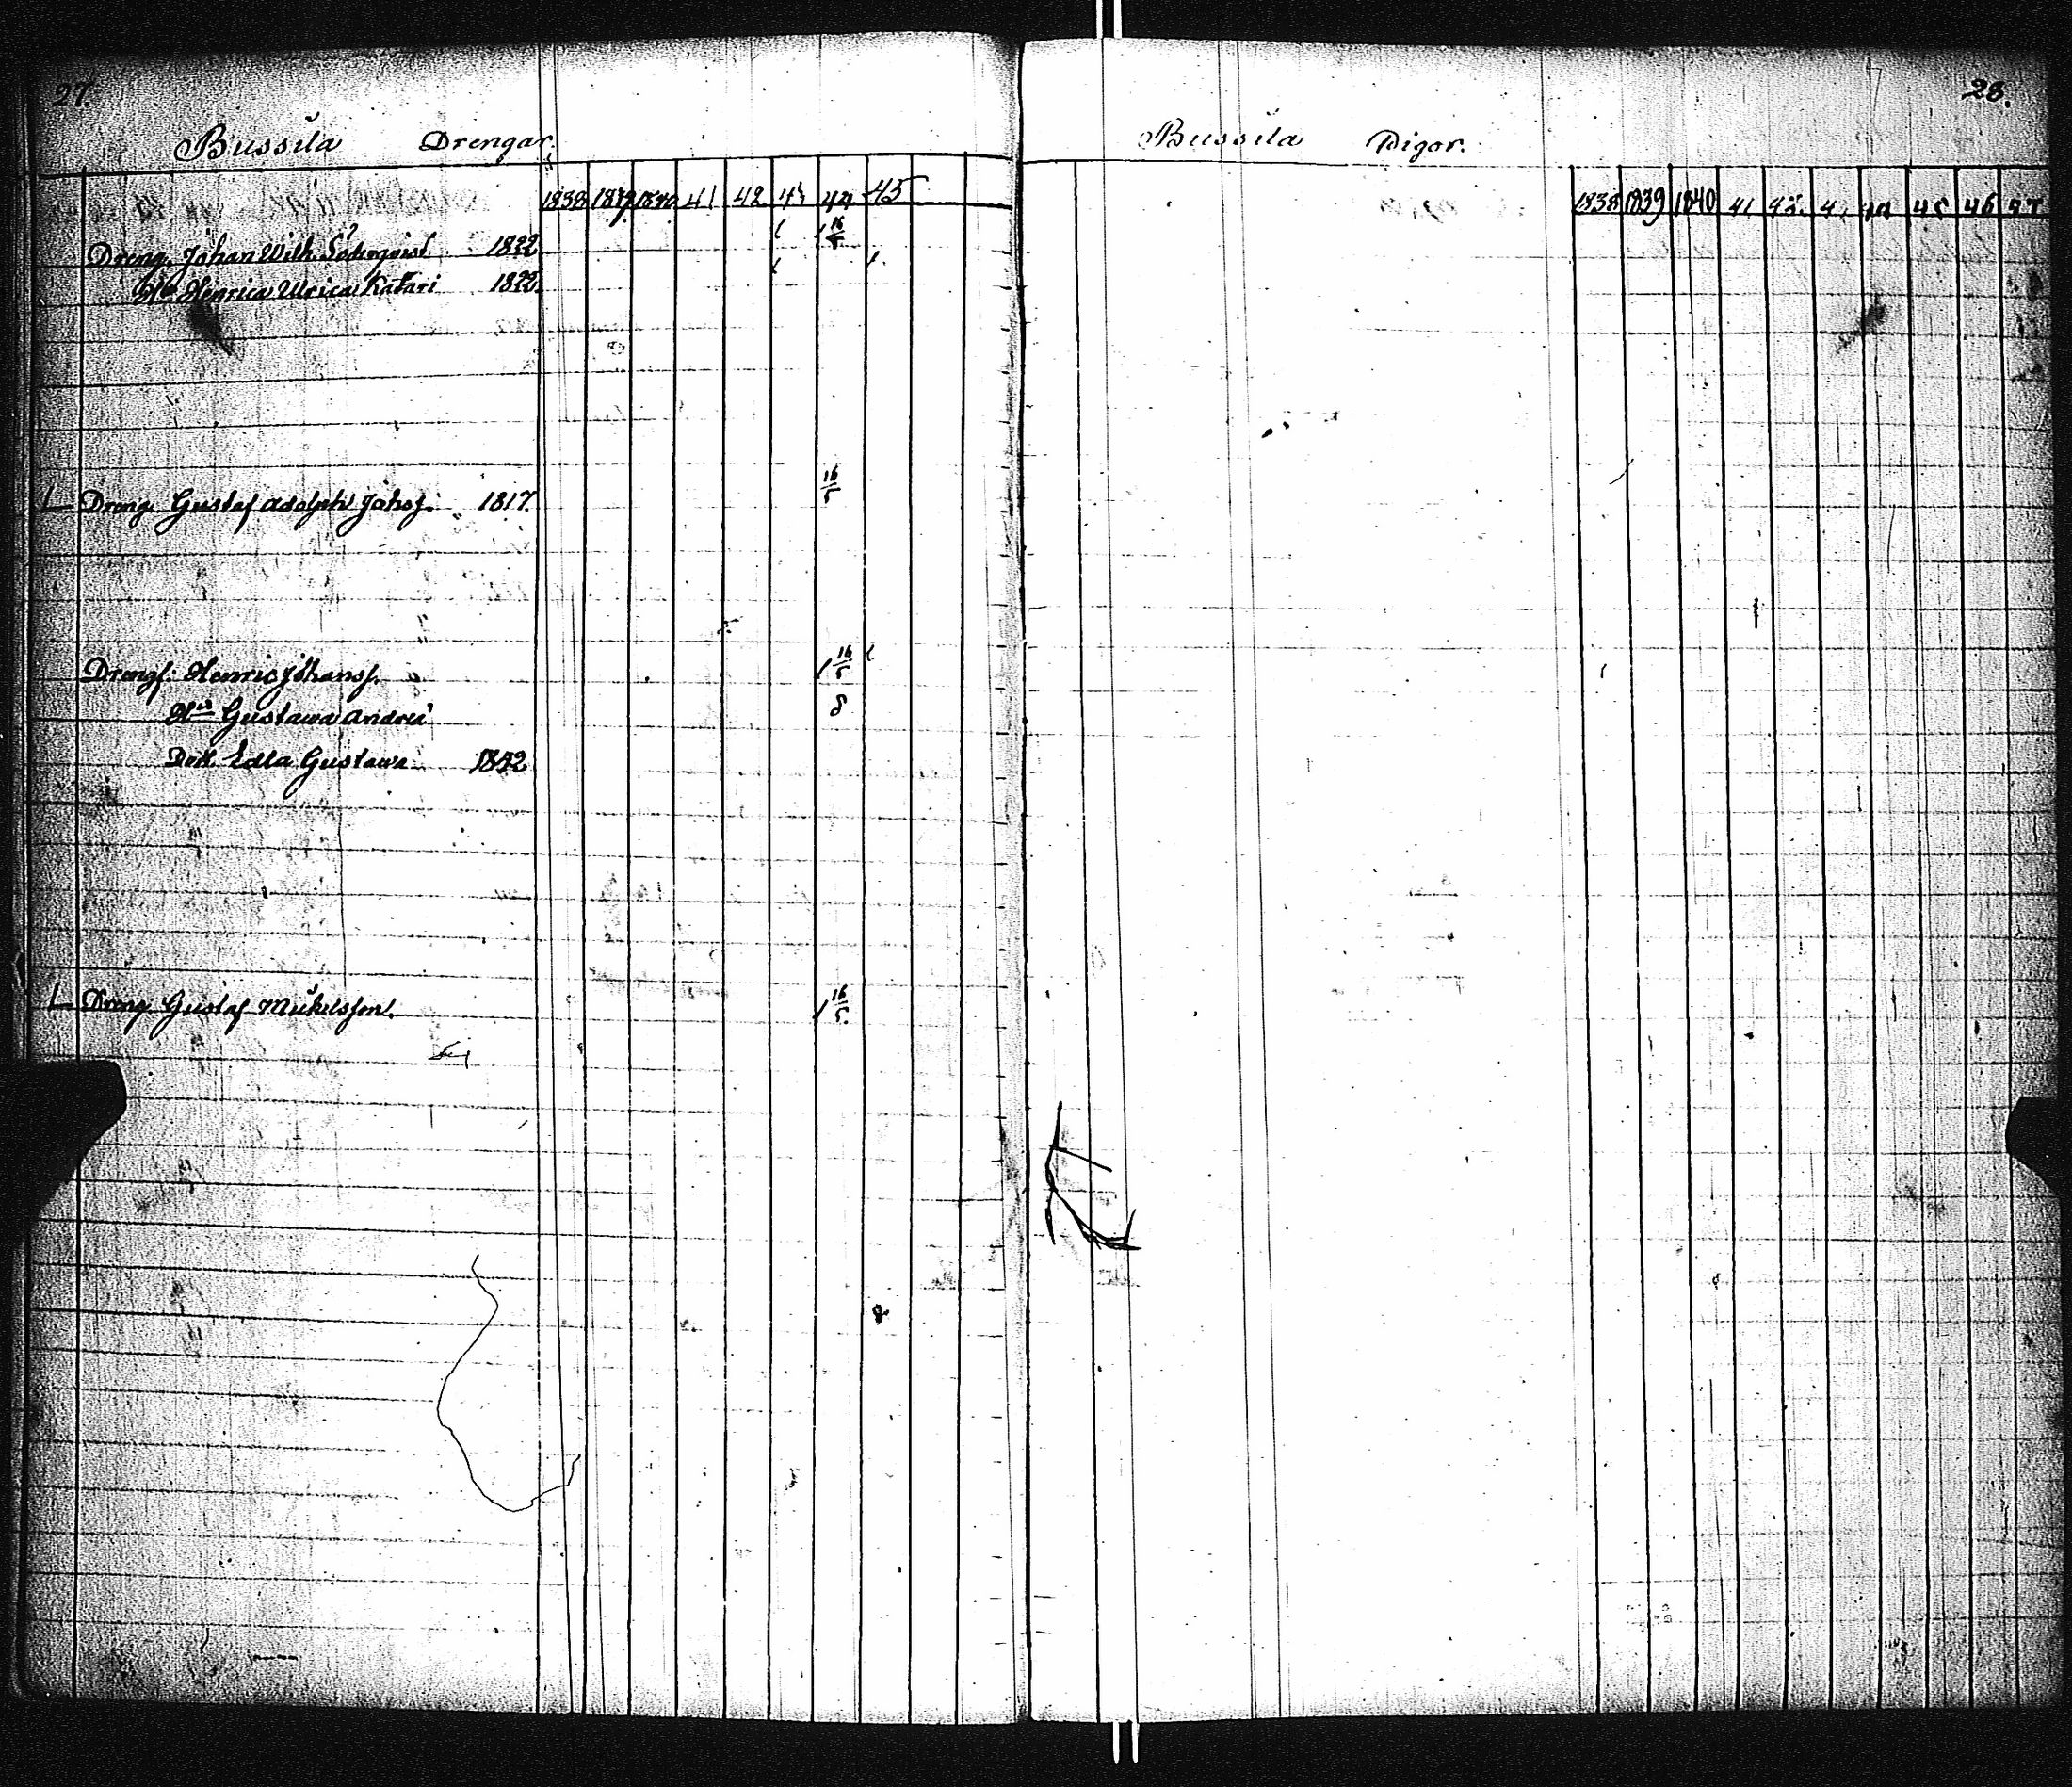 27.
Bussila Drengar.
1838 1839 1840 41 42 43 44 45
Dreng. Johan Wilh. 1822 16/5
Henrica Ulrica 1822.
L Dreng. Gustaf Adolph Johsf. 1817. 16/5
Drengf. Henric Johansf. 16/5
Gustawa Andrea 8
Dott. Edla Gustawa 1842
L Dreng. Gustaf Mickelsson. 16/5
28.
Bussila Pigor.
1838 1839 1840 41 42. 4 44 45 46 47